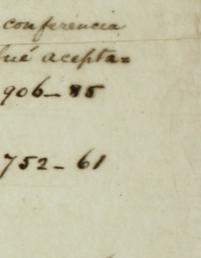 conferencia
fué acepta=
906_ 85
752_ 61